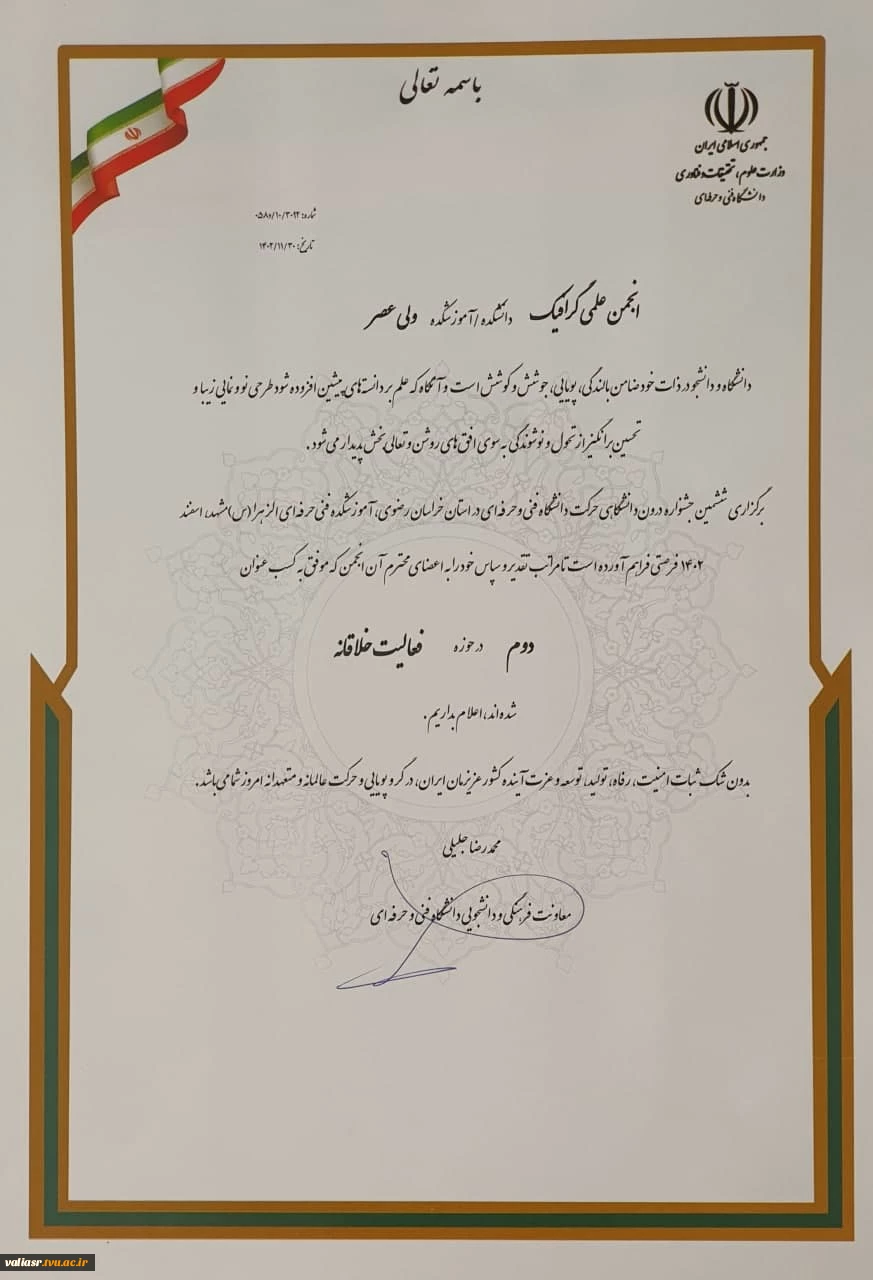 باسمه تعالی
جمهوری اسلامی ایران
وزارت علوم، تحقیقات و فناوری
دانشگاه فنی و حرفه‌ای
شماره: ۰۵۸۰/۱۰/۳۰۹۲
تاریخ: ۱۴۰۲/۱۱/۳۰
انجمن علمی گرافیک دانشکده/آموزشکده ولی عصر
دانشگاه و دانشجو در ذات خود ضامن بالندگی، پویایی، جوشش و کوشش است و آنگاه که علم بر دانسته‌های پیشین افزوده شود طرحی نو و نمایی زیبا و
تحسین برانگیز از تحول و نوشوندگی به سوی افق‌های روشن و تعالی بخش پدیدار می‌شود.
برگزاری ششمین جشنواره درون دانشگاهی حرکت دانشگاه فنی و حرفه‌ای در استان خراسان رضوی، آموزشکده فنی حرفه‌ای الزهرا (س) مشهد، اسفند
۱۴۰۲ فرصتی فراهم آورده است تا مراتب تقدیر و سپاس خود را به اعضای محترم آن انجمن که موفق به کسب عنوان
دوم در حوزه فعالیت خلاقانه
شده‌اند، اعلام بداریم.
بدون شک ثبات امنیت، رفاه، تولید، توسعه و عزت آینده کشور عزیزمان ایران، در گرو پویایی و حرکت عالمانه و متعهدانه امروز شما می‌باشد.
محمدرضا جلیلی
معاونت فرهنگی و دانشجویی دانشگاه فنی و حرفه ای
valiasr.tvu.ac.ir